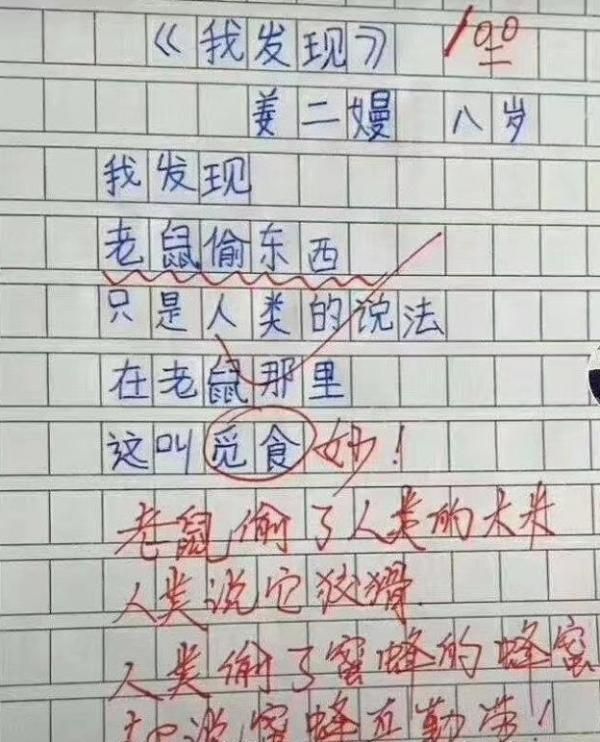 《我发现》 100
姜二嫚 八岁
我发现
老鼠偷东西
只是人类的说法
在老鼠那里
这叫觅食 妙！
老鼠偷了人类的大米
人类说它狡猾
人类偷了蜜蜂的蜂蜜
却说蜜蜂真勤劳！